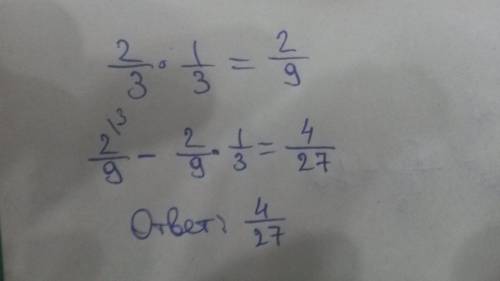 2/3 · 1/3 = 2/9
2^{\3}/9 − 2/9 · 1/3 = 4/27
Ответ: 4/27